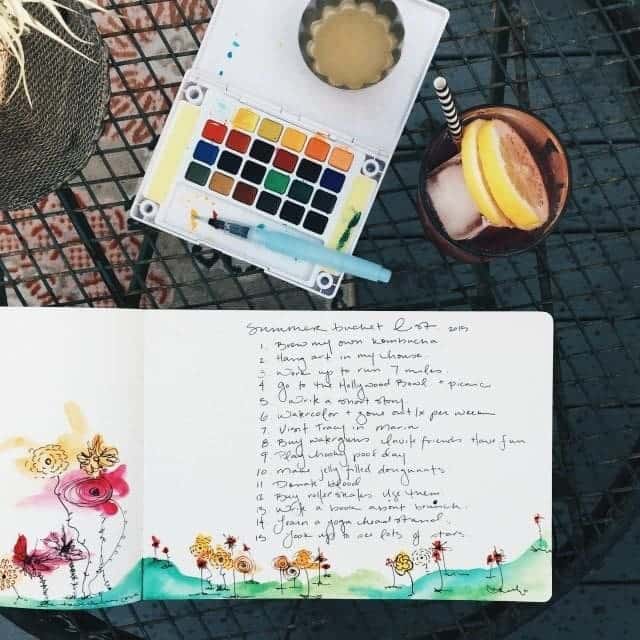 Summer bucket list 2015
1. Brew my own kombucha
2. Hang art in my house
3. Work up to run 7 miles.
4 go to the Hollywood Bowl + picnic
5 Write a short story
6 Watercolor + zone out 1x per week
7 Visit Tracy in Marin
8 Buy waterguns invite friends + have fun
9 Play hooky pool day
10 Make jelly filled doughnuts
11 Donate blood
12 Buy rollerskates. Use them
13 Write a book about brunch.
14 Learn a yoga headstand.
15 Look up to see lots of stars.